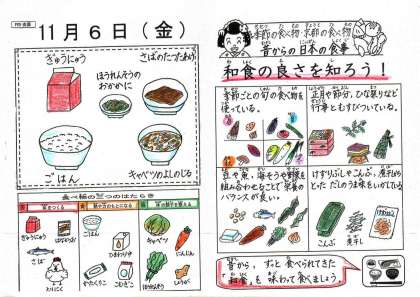 11月6日(金)
ぎゅうにゅう
さばのたつたあげ
ほうれんそうの
おかかに
ごはん
キャベツのよしのじる
食べ物の三つのはたらき
ぎゅうにゅう
さば
とりにく
ごはん
ひまわりあぶら
かたくりこ
こむぎこ
キャベツ
にんじん
ほうれんそう
しょうが
季節の食べ物・京都の食べ物
昔からの日本の食事
和食の良さを知ろう!
季節ごとの旬の食べ物を
使っている。
正月や節分、ひな祭りなど
行事とむすびついている。
豆や魚、海そうや野菜を
組み合わせることで栄養の
バランスが良い。
けずりぶしやこんぶ、煮干しから
とっただしのうま味をいかしている。
こんぶ
煮干し
昔から、ずっと食べられてきた
和食を味わって食べましょう。